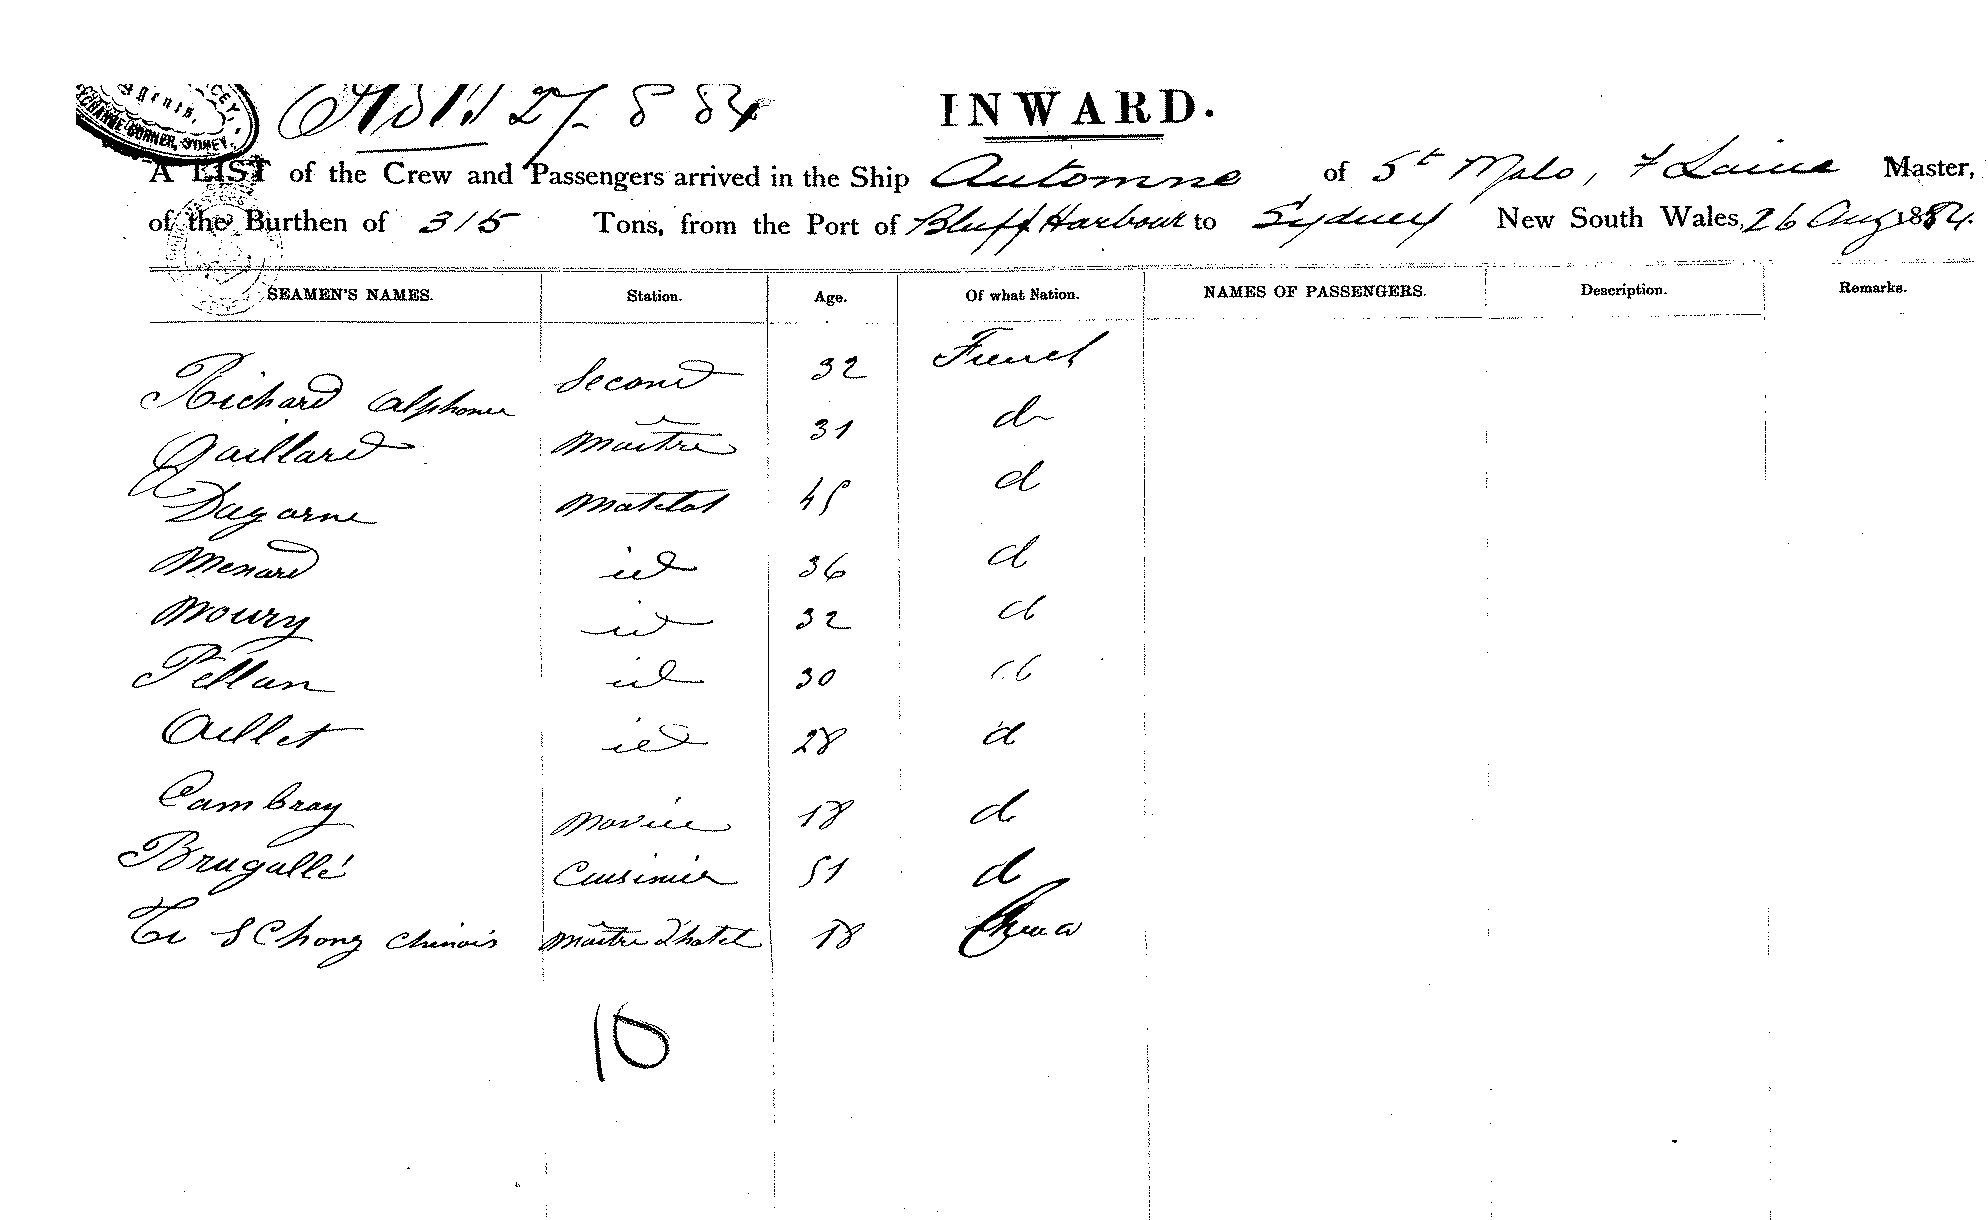 Agents,
EXCHANGE CORNER, SYDNEY.
27 8 84
INWARD.
A LIST of the Crew and Passengers arrived in the Ship Automne of St Malo, F Laine Master,
of the Burthen of 315 Tons, from the Port of Bluff Harbour to Sydney New South Wales, 26 Aug 1884.
SEAMEN'S NAMES. Station. Age. Of what Nation. NAMES OF PASSENGERS. Description. Remarks.
Richard Alphonse Second 32 French
Gaillard Maître 31 do
Dagorne Matelot 45 d
Menard id 36 d
Moury id 32 d
Pellan id 30 d
Aillet id 28 d
Cambray Novice 18 d
Brugallé Cuisinier 51 d
Chong chinois Maître d'hotel 18 China
10